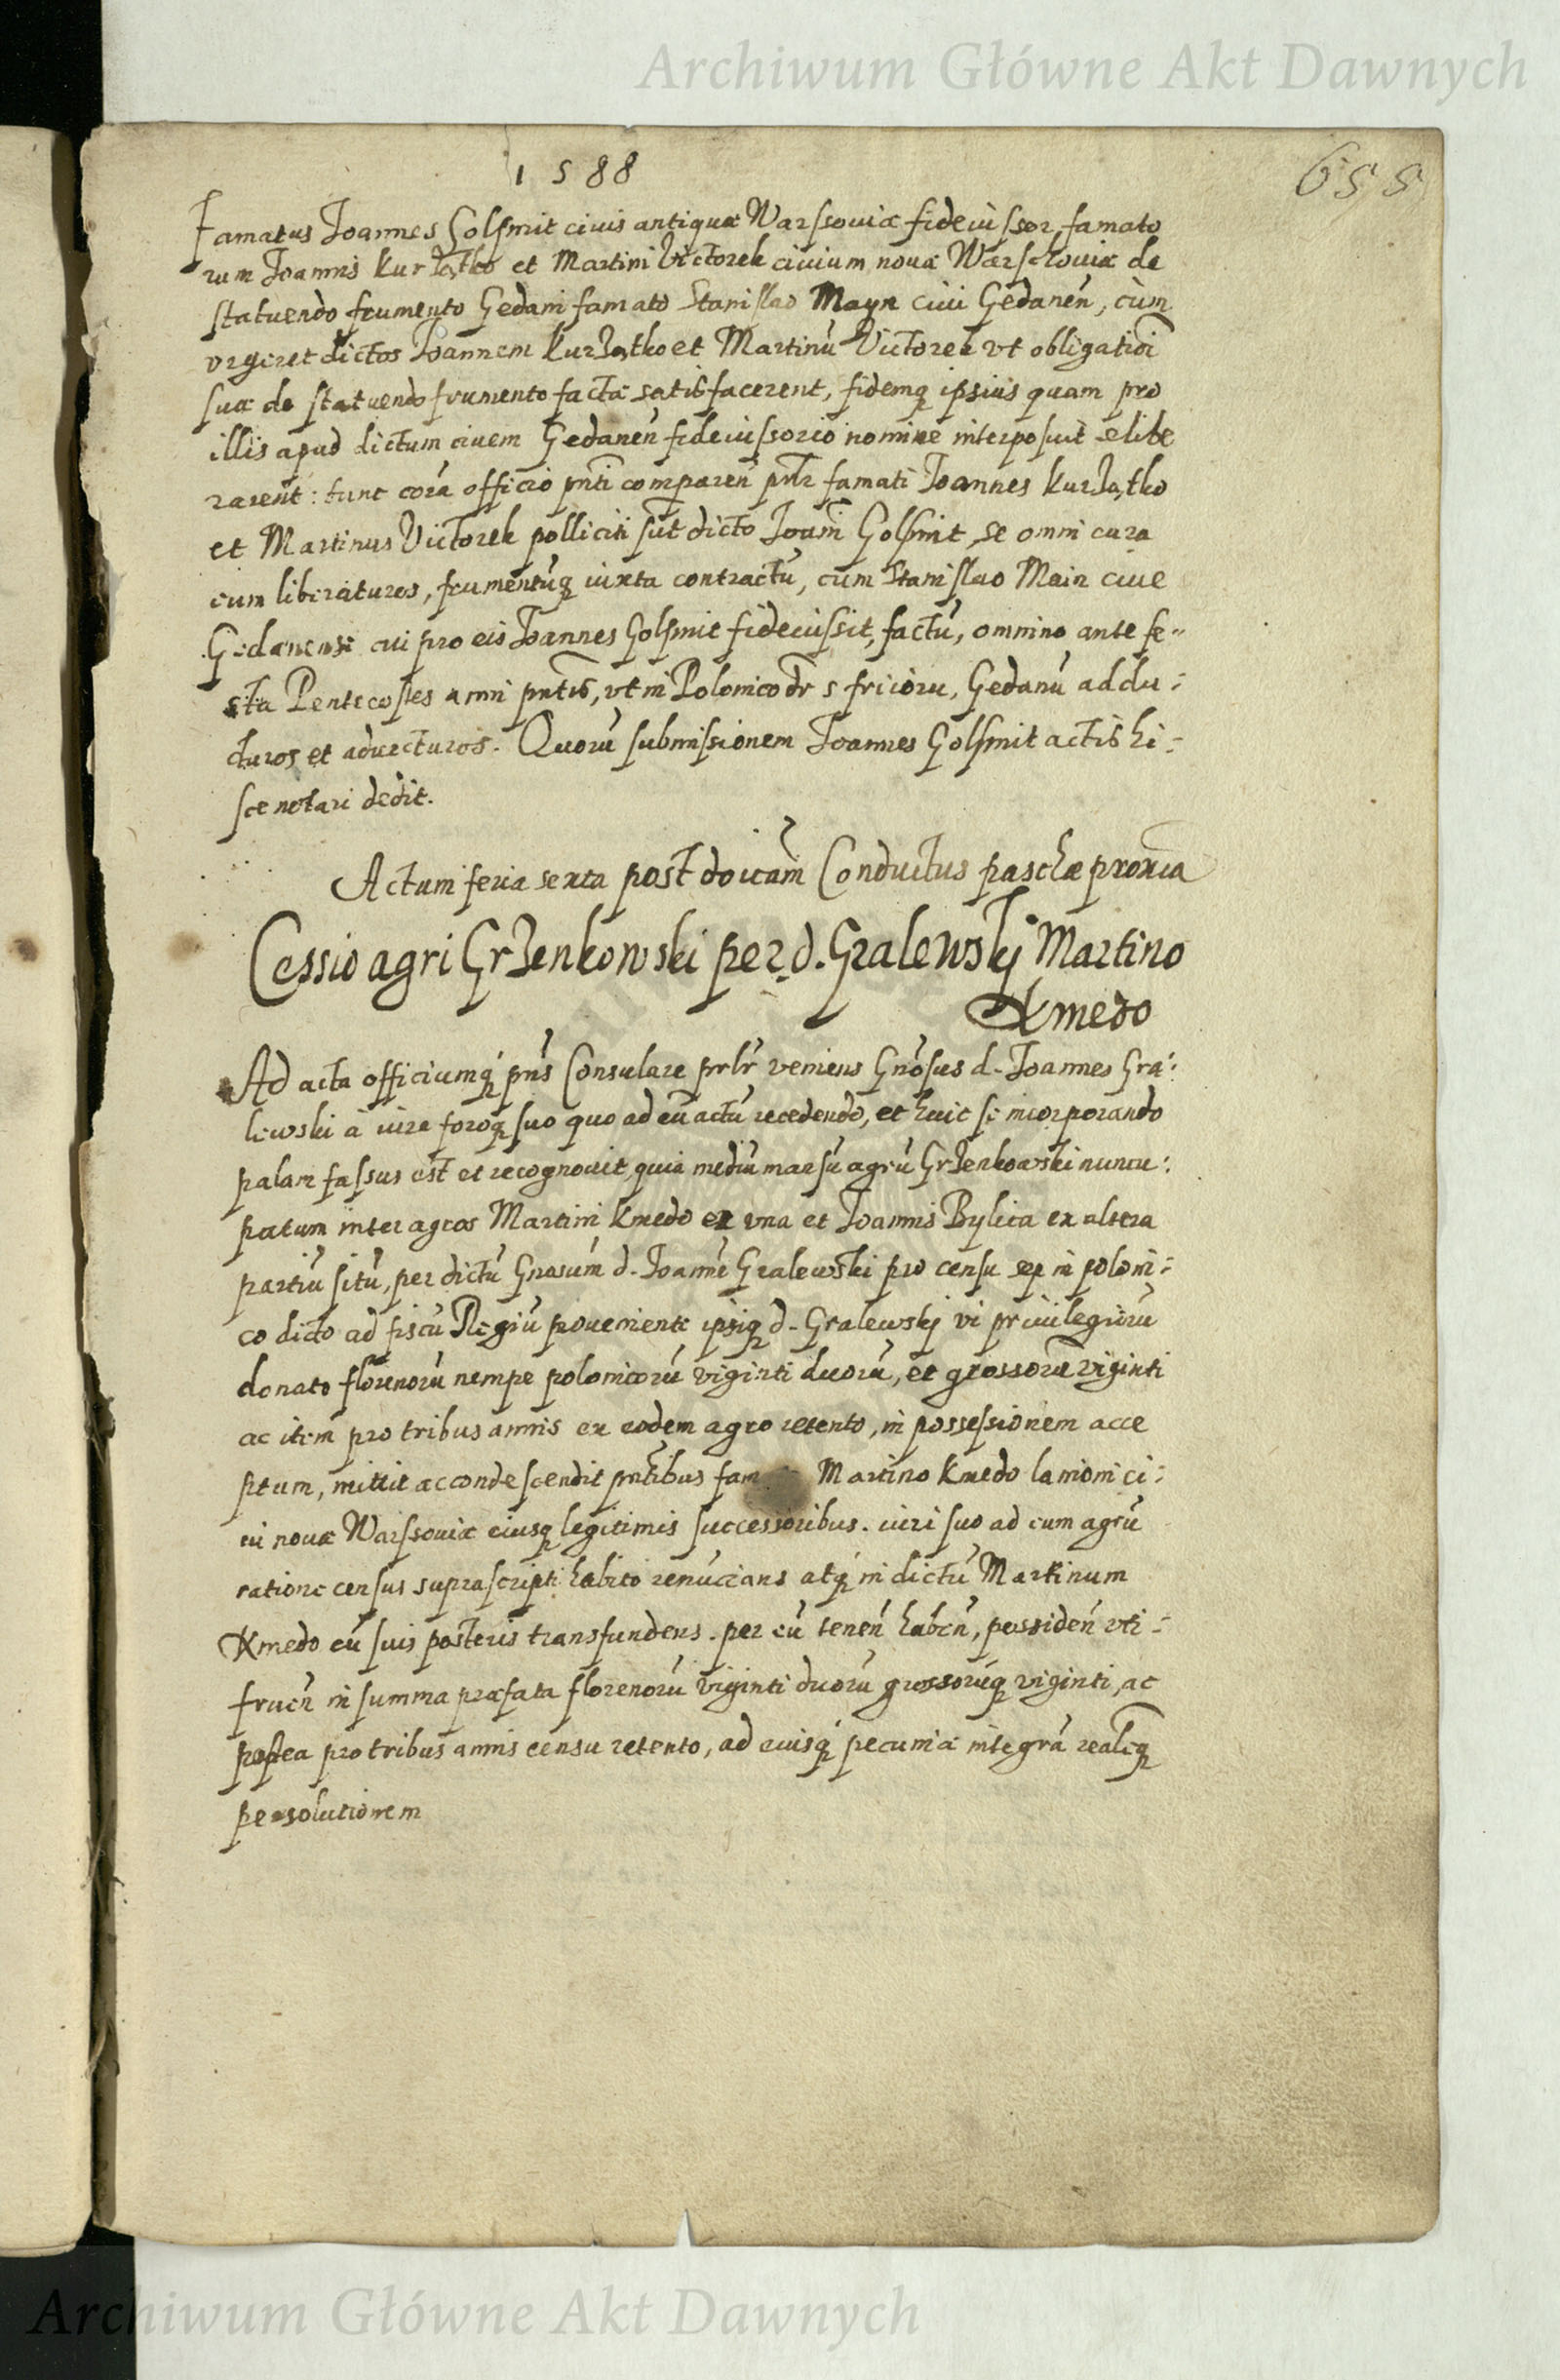 Archiwum Główne Akt Dawnych
1588
655
Famatus Joannes Golsmit civis antiquæ Warssoviæ fideiussor famato
rum Joannis Kurzątko et Martini Victorek civium novæ Warschoviæ de
statuendo frumento Gedani famato Stanislao Mayn civi Gedanen̄, cùm
vrgeret dictos Joannem Kurzątko et Martinū Victorek vt obligatiōi
suæ de statuendo frumento factæ satisfacerent, fidemq ipsius quam pro
illis apud dictum civem Gedanen̄ fideiussorio nomine interposuit elibe
rarent: tunc corā officio pn̄ti comparen̄ pn̄lr famati Joannes Kurzątko
et Martinus Victorek polliciti sūt dicto Joan̄i Golsmit, se omni cura
eum liberaturos, frumentūq iuxta contractū, cum Stanislao Main cive
Gedanensi cui pro eis Joannes Golsmit fideiussit, factū, omnino ante fe-
sta Pentecostes anni pn̄tis, vt in Polonico dr s fricioru, Gedanū addu:
cturos et advecturos. Quorū submissionem Joannes Golsmit actis hi:
sce notari dedit.
Actum feria sexta post doīcam Conductus paschæ proxīa
Cessio agri Grzenkowski per d. Gralewskj Martino
Kmedo
Ad acta officiumq pn̄s Consulare prlr veniens Gn̄osus d. Joannes Gra:
lewski à iure foroq suo quo ad eū actū recedendo, et huic se incorporando
palam fassus est et recognovit, quia mediū mansū agrū Grzenkowski nuncu:
patum inter agros Martini Kmedo ex vna et Joannis Bylica ex altera
partiū sitū, per dictū Gnosum d. Joannē Gralewski pro censu sep in poloni:
co dicto ad fiscū Regiū proveniente ipsiq d. Gralewskj vi privilegiorū
donato florenorū nempe polonicorū viginti duorū, et grossorū viginti
ac item pro tribus annis ex eodem agro retento, in possessionem acce
ptum, mittit ac condescendit pn̄tibus fam Martino Kmedo lanioni ci:
vi novæ Warssoviæ eiusq legitimis successoribus. iuri suo ad eum agrū
ratione census suprascripti habito renūcians atq in dictū Martinum
Kmedo cū suis posteris transfundens. per eū tenen̄ haben̄, possiden̄ vti:
fruen̄ in summa præfata florenorū viginti duorū grossorūq viginti, ac
postea pro tribus annis censu retento, ad eiusq pecuniæ integrā realēq
persolutionem
Archiwum Główne Akt Dawnych